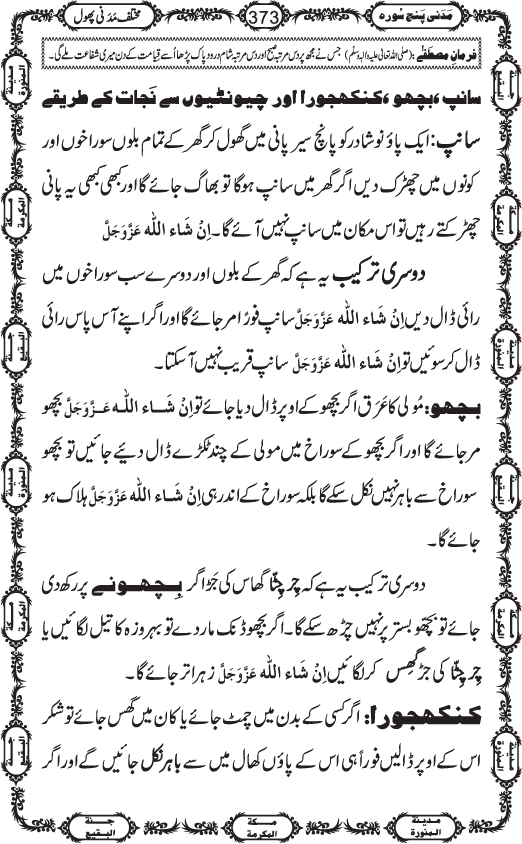 مختلف مَدَنی پھول
373
مَدَنی پنج سُورہ
فرمانِ مصطَفٰے: (صلی اللہ تعالیٰ علیہ والہ وسلم) جس نے مجھ پر دس مرتبہ صبح اور دس مرتبہ شام درود پاک پڑھا اُسے قیامت کے دن میری شفاعت ملے گی۔
سانپ، بچھو، کنکھجورا اور چیونٹیوں سے نَجات کے طریقے
سانپ: ایک پاؤ نوشادر کو پانچ سیر پانی میں گھول کر گھر کے تمام بلوں سوراخوں اور
کونوں میں چھڑک دیں اگر گھر میں سانپ ہوگا تو بھاگ جائے گا اور کبھی کبھی یہ پانی
چھڑکتے رہیں تو اس مکان میں سانپ نہیں آئے گا۔ اِنْ شَاءَ اللّٰه عَزَّوَجَلَّ
دوسری ترکیب یہ ہے کہ گھر کے بلوں اور دوسرے سب سوراخوں میں
رائی ڈال دیں اِنْ شَاءَ اللّٰه عَزَّوَجَلَّ سانپ فورًا مر جائے گا اور اگر اپنے آس پاس رائی
ڈال کر سوئیں تو اِنْ شَاءَ اللّٰه عَزَّوَجَلَّ سانپ قریب نہیں آسکتا۔
بچھو: مُولی کا عَرَق اگر بچھو کے اوپر ڈال دیا جائے تو اِنْ شَاءَ اللّٰه عَزَّوَجَلَّ بچھو
مر جائے گا اور اگر بچھو کے سوراخ میں مولی کے چند ٹکڑے ڈال دیئے جائیں تو بچھو
سوراخ سے باہر نہیں نکل سکے گا بلکہ سوراخ کے اندر ہی اِنْ شَاءَ اللّٰه عَزَّوَجَلَّ ہلاک ہو
جائے گا۔
دوسری ترکیب یہ ہے کہ چِرچِٹّا گھاس کی جَڑ اگر بِچھونے پر رکھ دی
جائے تو بچھو بستر پر نہیں چڑھ سکے گا۔ اگر بچھو ڈنک مار دے تو بہروزہ کا تیل لگائیں یا
چِرچِٹّا کی جڑ گھِس کر لگائیں اِنْ شَاءَ اللّٰه عَزَّوَجَلَّ زہر اتر جائے گا۔
کنکھجورا: اگر کسی کے بدن میں چمٹ جائے یا کان میں گھس جائے تو شکر
اس کے اوپر ڈالیں فوراً ہی اس کے پاؤں کھال میں سے باہر نکل جائیں گے اور اگر
مدینة المنورة
جنة البقيع
مكة المكرمة
مكة المكرمة
جنة البقيع
مدينة المنورة
مدينة المنورة
جنة البقيع
مكة المكرمة
مكة المكرمة
جنة البقيع
مدينة المنورة
جنة البقيع
مكة المكرمة
مدينة المنورة